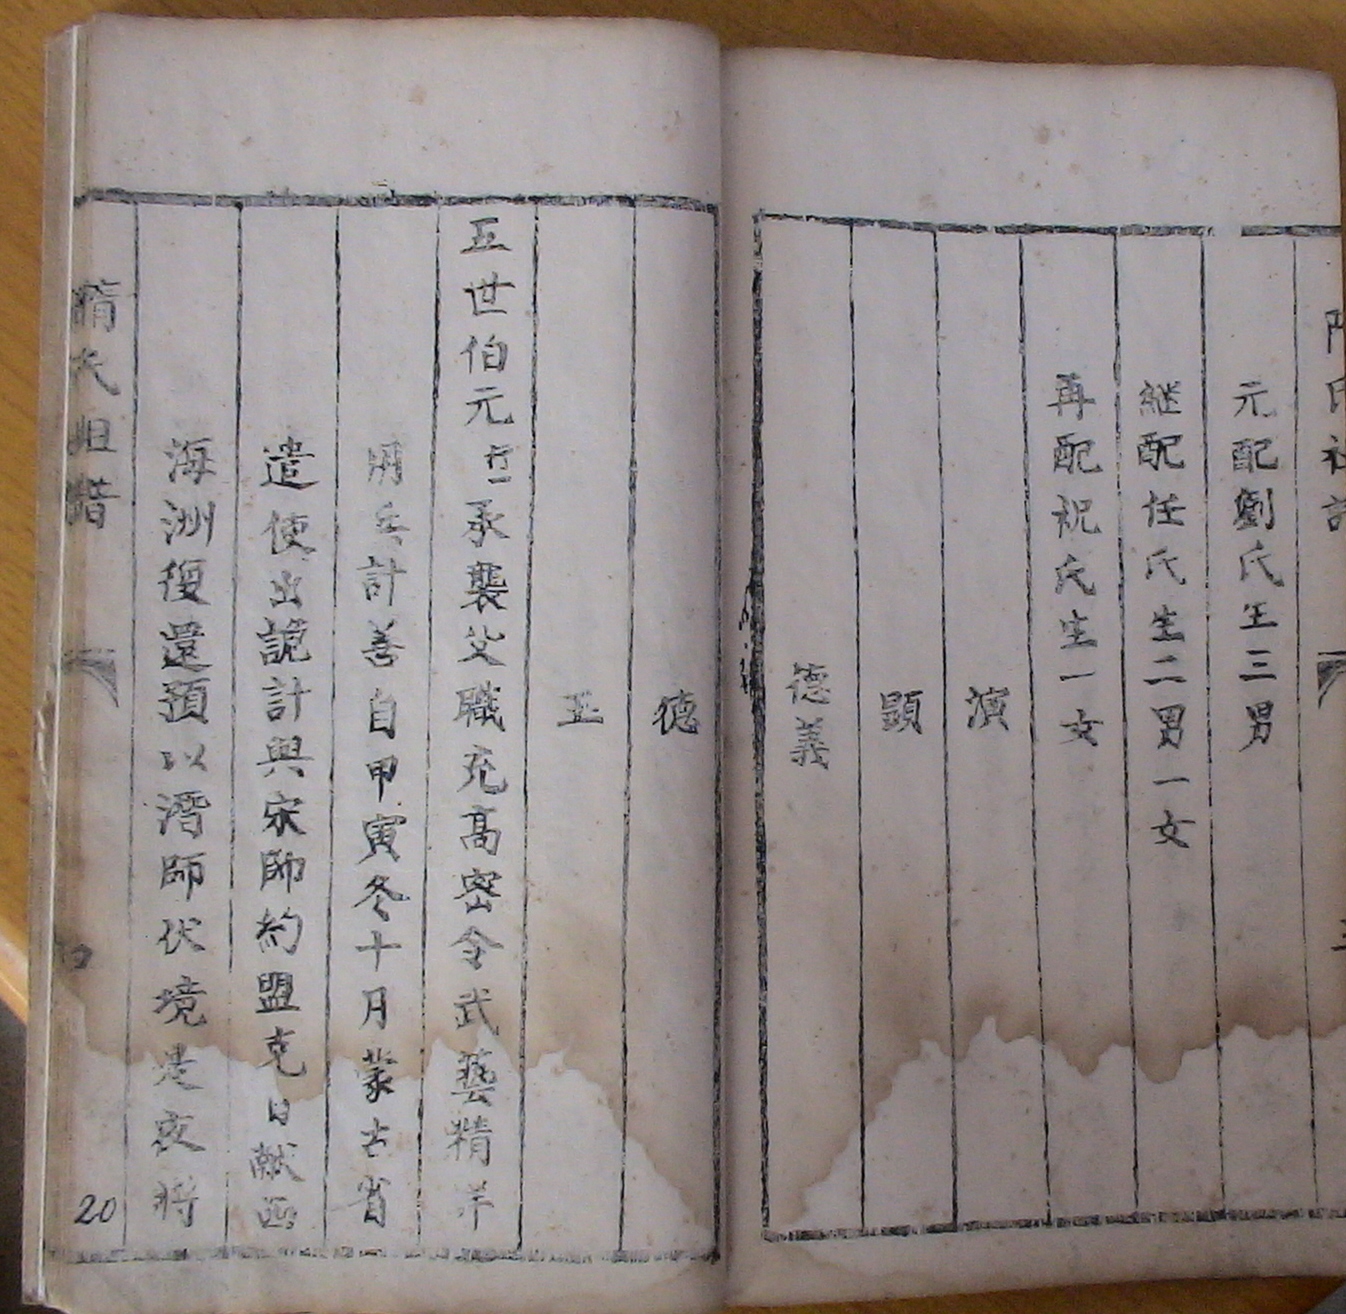 氏
元配劉氏生三男
継配任氏生二男一女
再配祝氏生一女
演
顕
德義
德
五
五世伯元行一承襲父職充高密令武藝精
用兵計善自甲寅冬十月蒙古省
遣使出詭計與宋帥約盟克日献西
海洲復還預以潛師伏境是夜將
隋氏祖譜
20